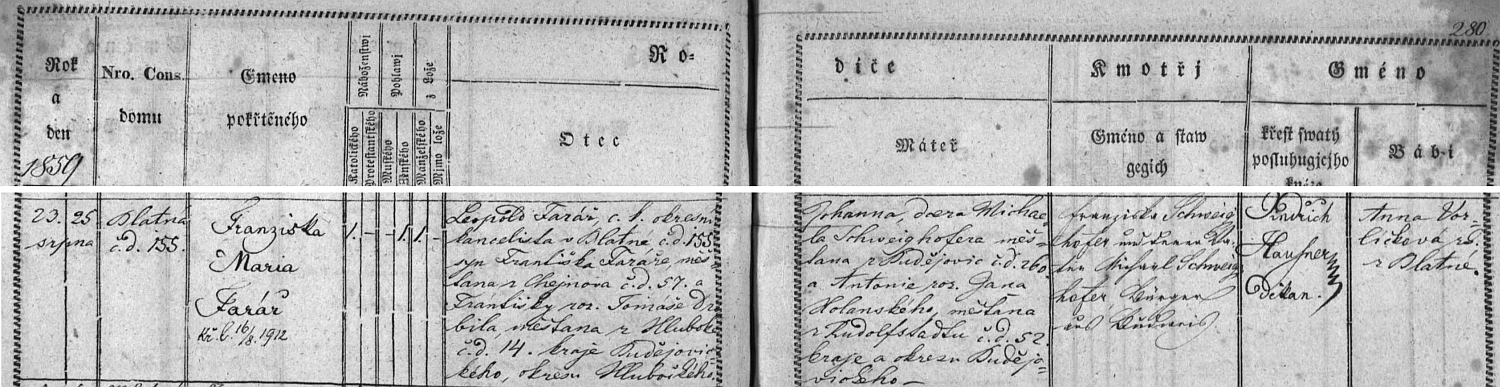 280
Rok
a
den
1859
Nro. Cons.
domu
Gmeno
pokřtěného
Náboženstwí
Pohlawí
z Lože
Katolického
Protestantského
Mužského
Ženského
Manželského
Mimo lože
Ro-
Otec
diče
Máteř
Kmotřj
Gméno a staw
gegich
Gméno
křest swatý
posluhugjcýho
kněze
Bábi
23. 25
srpna
Blatná
č.d. 155.
Franziska
Maria
Farář
Kř. l. 16/8. 1912
1. – – 1. 1. –
Leopold Farář, c. k. okresní
kancelista v Blatné č.d. 155
syn Františka Faráře, měš-
ťana z Chejnova č.d. 57. a
Františky roz. Tomáše Dro
bila, měšťana z Hluboké
č.d. 14. kraje Budějovic-
kého, okresu Hlubockého.
Johanna, dcera Michae
la Schweighofera měš-
ťana z Budějovic č.d. 260
a Antonie roz. Jana
Holanského, měšťana
z Rudolfstadtu č.d. 52
kraje a okresu Budějo-
vického –
Franziska Schweig
hofer und
Michael Schweig
hofer Bürger
aus Budweis
Jindřich
Haußner
Děkan.
Anna Vor-
líčková
z Blatné.